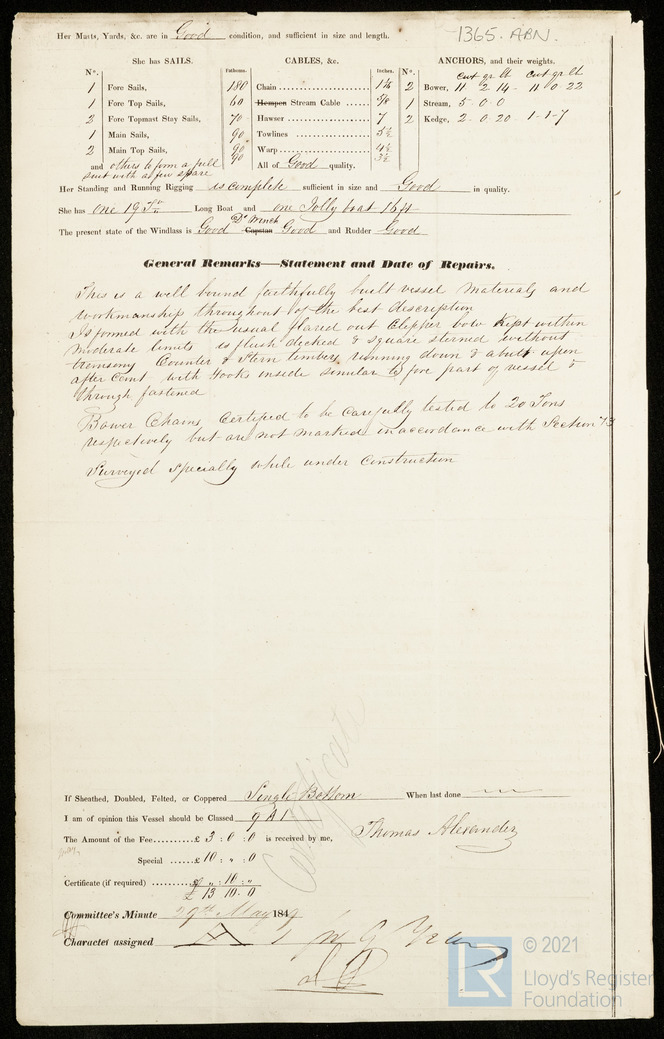 1365. ABN.
Her Masts, Yards, &c. are in Good condition, and sufficient in size and length.
She has SAILS. CABLES, &c. ANCHORS, and their weights.
N°. Fathoms. Inches. N°. cwt qr lb cwt qr lb
1 Fore Sails, 180 Chain 1 1/16 2 Bower, 11 2 14 - 11 0 22
1 Fore Top Sails, 60 Hempen Stream Cable 5/8 1 Stream, 5 - 0 - 0
2 Fore Topmast Stay Sails, 70 Hawser 7 2 Kedge, 2 - 0 20 1 - 1 - 7
1 Main Sails, 90 Towlines 5½
2 Main Top Sails, 90 Warp 4½
and others to form a full 90 All of Good quality. 3½
suit with a few spare
Her Standing and Running Rigging is complete sufficient in size and Good in quality.
She has one 19 Ft Long Boat and one Jolly boat 16 ft
The present state of the Windlass is Good Capstan Do Winch Good and Rudder Good
General Remarks—Statement and Date of Repairs.
This is a well bound faithfully built vessel Materials and
workmanship throughout of the best description
Is formed with the usual flared out Clipper bow Kept within
moderate limits is flush decked & square sterned without
transoms Counter & Stern timbers running down & abutt upon
after Cant with Hooks inside similar to fore part of vessel &
through fastened
Bower Chains Certified to be carefully tested to 20 Tons
respectively but are not marked in accordance with Section 73
Surveyed Specially while under Construction
If Sheathed, Doubled, Felted, or Coppered Single Bottom When last done
I am of opinion this Vessel should be Classed 9 A 1
The Amount of the Fee......£ 3 : 0 : 0 is received by me, Thomas Alexander
Special ......£ 10 : " : 0
Certificate (if required) .........£ " : 10 : "
£ 13 10 - 0
Certificate
Committee's Minute 29th May 1849
Character assigned A 1 for 9 Years
LR © 2021
Lloyd's Register
Foundation